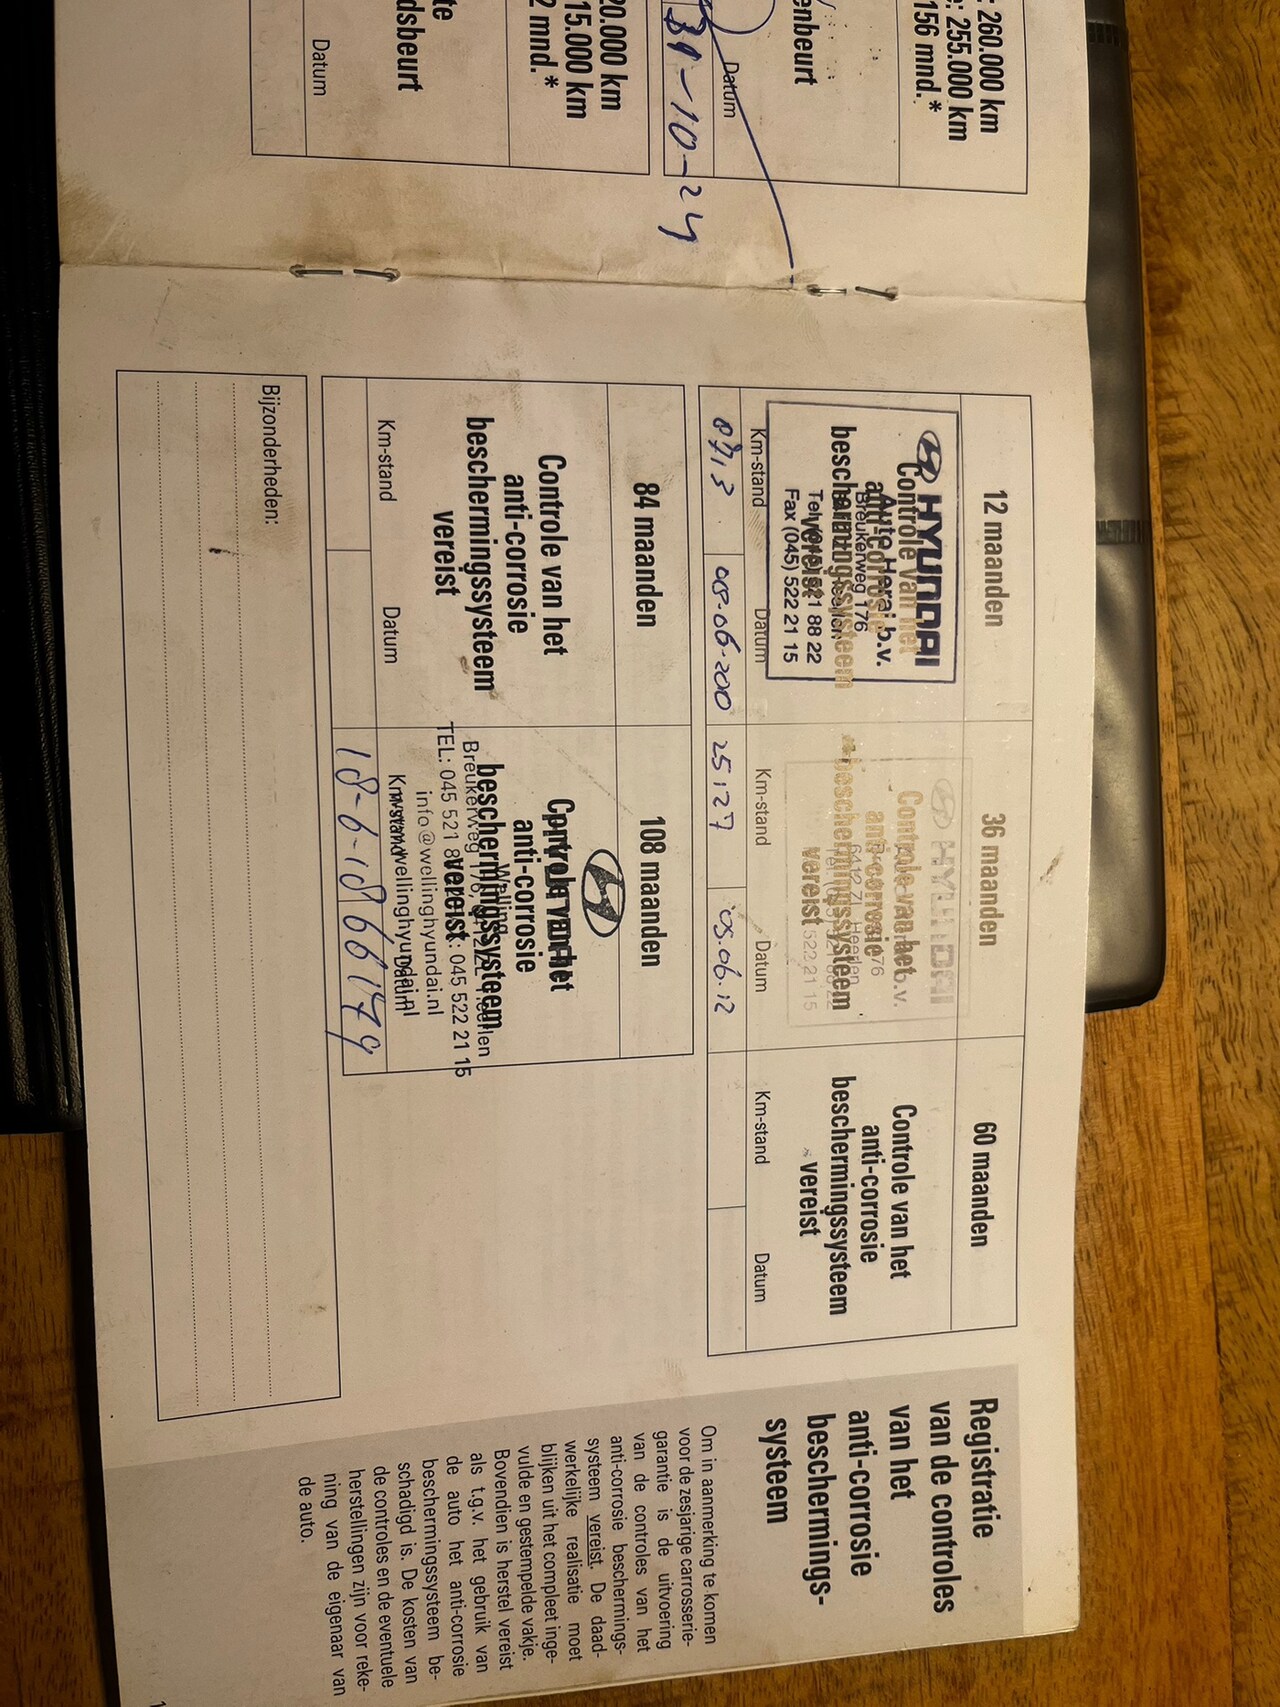 : 260.000 km
: 255.000 km
156 mnd. *
enbeurt
Datum
31-10-24
20.000 km
15.000 km
2 mnd. *
te
dsbeurt
Datum
Registratie
van de controles
van het
anti-corrosie
beschermings-
systeem
Om in aanmerking te komen
voor de zesjarige carrosserie-
garantie is de uitvoering
van de controles van het
anti-corrosie beschermings-
systeem vereist. De daad-
werkelijke realisatie moet
blijken uit het compleet inge-
vulde en gestempelde vakje.
Bovendien is herstel vereist
als t.g.v. het gebruik van
de auto het anti-corrosie
beschermingssysteem be-
schadigd is. De kosten van
de controles en de eventuele
herstellingen zijn voor reke-
ning van de eigenaar van
de auto.
12 maanden
Controle van het
anti-corrosie
beschermingssysteem
vereist
HYUNDAI
Auto Herai b.v.
Breukerweg 176
Fax (045) 522 21 15
Km-stand
Datum
8713
36 maanden
Controle van het
anti-corrosie
beschermingssysteem
vereist
HYUNDAI
Km-stand
Datum
25127
05.06.12
60 maanden
Controle van het
anti-corrosie
beschermingssysteem
vereist
Km-stand
Datum
84 maanden
Controle van het
anti-corrosie
beschermingssysteem
vereist
Km-stand
Datum
108 maanden
Controle van het
anti-corrosie
beschermingssysteem
vereist
Welling
Breukerweg 176,
TEL: 045 521 8 : 045 522 21 15
info@wellinghyundai.nl
wellinghyundai.nl
Km-stand
Datum
18-6-18 66179
Bijzonderheden: